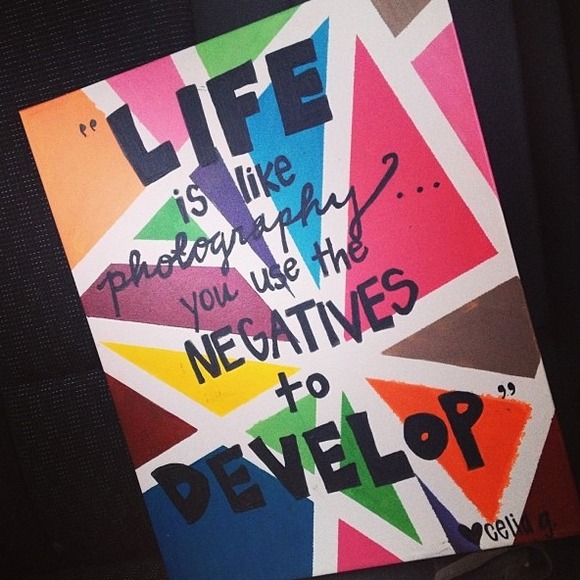 "LIFE
is like
photography...
you use the
NEGATIVES
to
DEVELOP"
♥celia g.